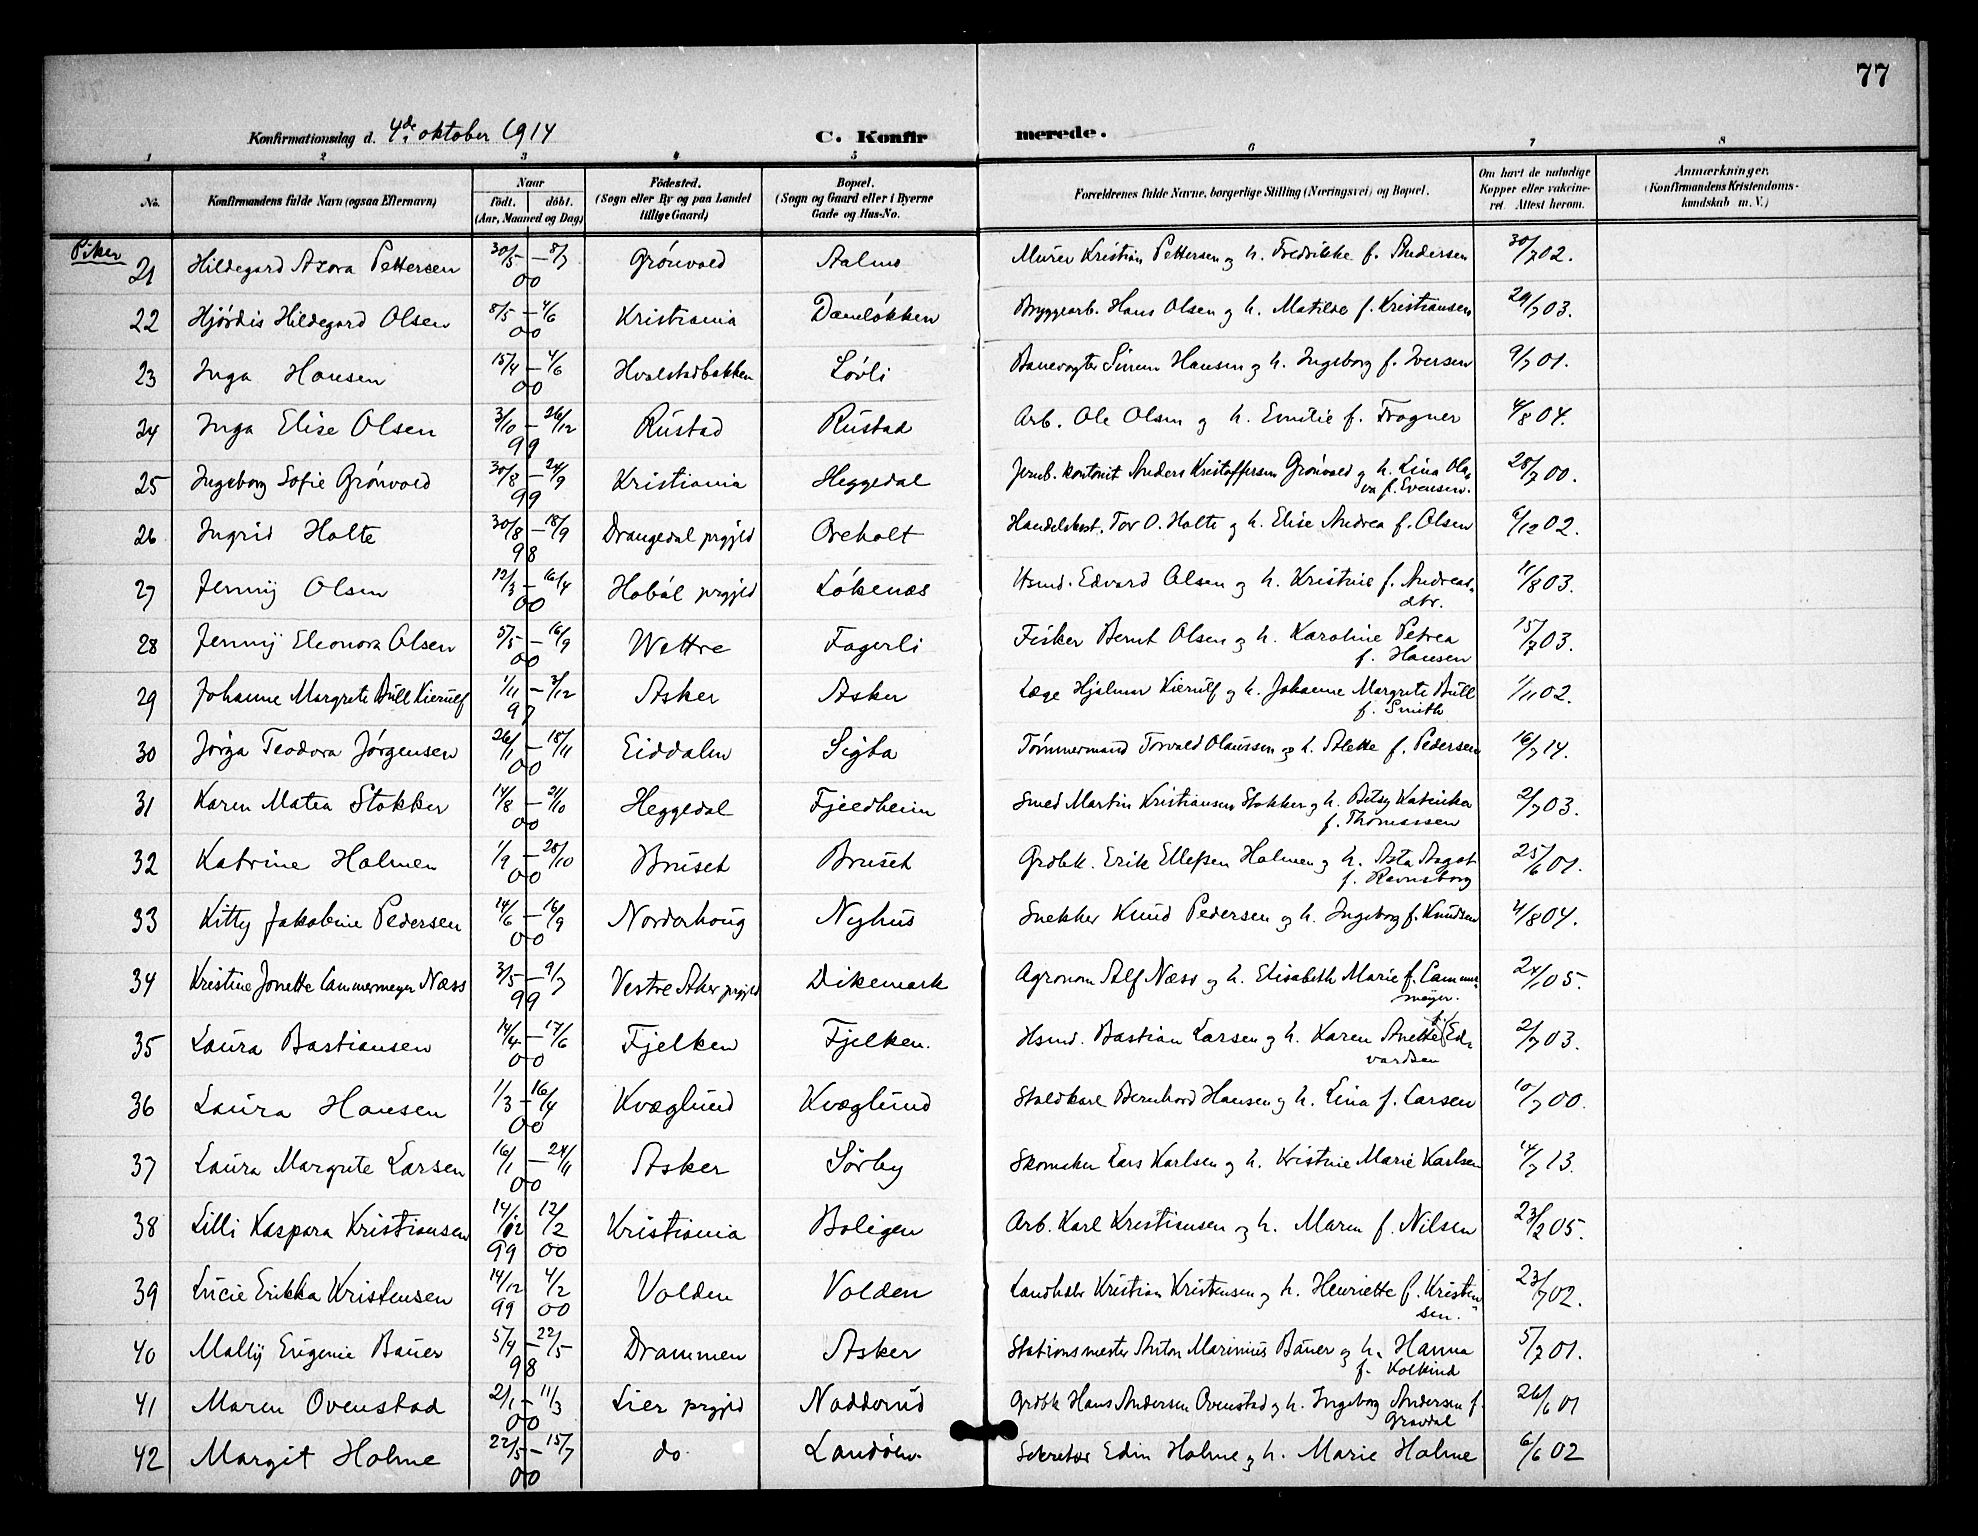 77
Konfirmationsdag d. 4de oktober 1914 C. Konfirmerede.
1 2 3 4 5 6 7 8
No. Konfirmandens fulde Navn (ogsaa Efternavn) Naar født. døbt. (Aar, Maaned og Dag) Fødested. (Sogn eller By og paa Landet tillige Gaard) Bopæl. (Sogn og Gaard eller i Byerne Gade og Hus-No. Forældrenes fulde Navne, borgerlige Stilling (Næringsvei) og Bopæl. Om havt de naturlige Kopper eller vakcineret. Attest herom. Anmærkninger. (Konfirmandens Kristendomskundskab m. V.)
Piker
21 Hildegard Azora Pettersen 30/5 – 8/7 00 Grönvold Aalmo Murer Kristian Pettersen og h. Fredrikke f. Andersen 30/7 02.
22 Hjördis Hildegard Olsen 8/5 – 4/6 00 Kristiania Damlökken Bryggearb. Hans Olsen og h. Matilde f. Kristiansen 29/7 03.
23 Inga Hansen 15/4 – 4/6 00 Hvalstadbakken Lövli Banevogter Simen Hansen og h. Ingeborg f. Iversen 9/7 01.
24 Inga Elise Olsen 3/10 – 26/12 99 Rustad Rustad Arb. Ole Olsen og h. Emilie f. Frogner 4/8 04.
25 Ingeborg Sofie Grönvold 30/8 – 24/9 99 Kristiania Heggedal Jernb. kontorist Anders Kristoffersen Grönvold og h. Lina Olava f. Evensen. 28/7 00.
26 Ingrid Holte 30/8 – 18/9 98 Drangedal prgjld Oreholt Handelsbest. Tor O. Holte og h. Elise Andrea f. Olsen 6/12 02.
27 Jenny Olsen 12/3 – 16/4 00 Hobøl prgjld Lökenæs Hsmd. Edvard Olsen og h. Kristine f. Andreasdtr. 11/8 03.
28 Jenny Eleonora Olsen 5/5 – 16/9 00 Wettre Fagerli Fisker Bernt Olsen og h. Karoline Petrea f. Hansen 15/7 03.
29 Johanne Margrete Bull Kierulf 1/11 – 3/12 97 Asker Asker Læge Hjalmar Kierulf og h. Johanne Margrete Bull f. Smith 1/11 02.
30 Jörga Teodora Jörgensen 26/1 – 18/11 00 Eiddalen Sigta Tömmermand Torvald Olaussen og h. Alette f. Pedersen 16/7 14.
31 Karen Matea Stokker 14/8 – 21/10 00 Heggedal Fjeldheim Smed Martin Kristiansen Stokker og h. Betsy Katinka f. Thomassen 2/7 03.
32 Katrine Holmen 1/9 – 28/10 00 Bruset Bruset Grdbk. Erik Ellefsen Holmen og h. Asta Aagot f. Ravnsborg 25/6 01.
33 Kitty Jakobine Pedersen 14/6 – 16/9 00 Norderhoug Nyhus Snekker Knud Pedersen og h. Ingeborg f. Knudsen 4/8 04.
34 Kristine Jonette Cammermeyer Næss 3/5 – 9/7 99 Vestre Aker prgjld Dikemark Agronom Alf Næss og h. Elisabeth Marie f. Cammermeyer. 24/1 05.
35 Laura Bastiansen 14/4 – 17/6 00 Fjelken Fjelken. Hsmd. Bastian Larsen og h. Karen Anette f. Edvardsen 2/7 03.
36 Laura Hansen 1/3 – 16/4 00 Kvæglund Kvæglund Staldkarl Bernhard Hansen og h. Lina f. Larsen 10/7 00.
37 Laura Margrete Larsen 16/1 – 24/11 00 Asker Sörby Skomaker Lars Karlsen og h. Kristine Marie Karlsen 14/7 13.
38 Lilli Kaspara Kristiansen 14/12 99 12/2 00 Kristiania Boligen Arb. Karl Kristiansen og h. Maren f. Nilsen 23/2 05.
39 Lucie Erikka Kristensen 14/12 99 4/2 00 Volden Volden Landhdlr Kristian Kristensen og h. Henriette f. Kristensen. 23/7 02.
40 Mally Eugenie Bauer 5/4 – 22/5 98 Drammen Asker Stationsmester Anton Marinius Bauer og h. Hanna f. Kolkind 5/7 01.
41 Maren Ovenstad 2/1 – 11/3 00 Lier prgjld Nadderud Grdbk Hans Andersen Ovenstad og h. Ingeborg Andersen f. Gravdal 26/6 01
42 Margit Holme 22/5 – 15/7 00 do. Landöen. Sekretær Edin Holme og h. Marie Holme 6/6 02